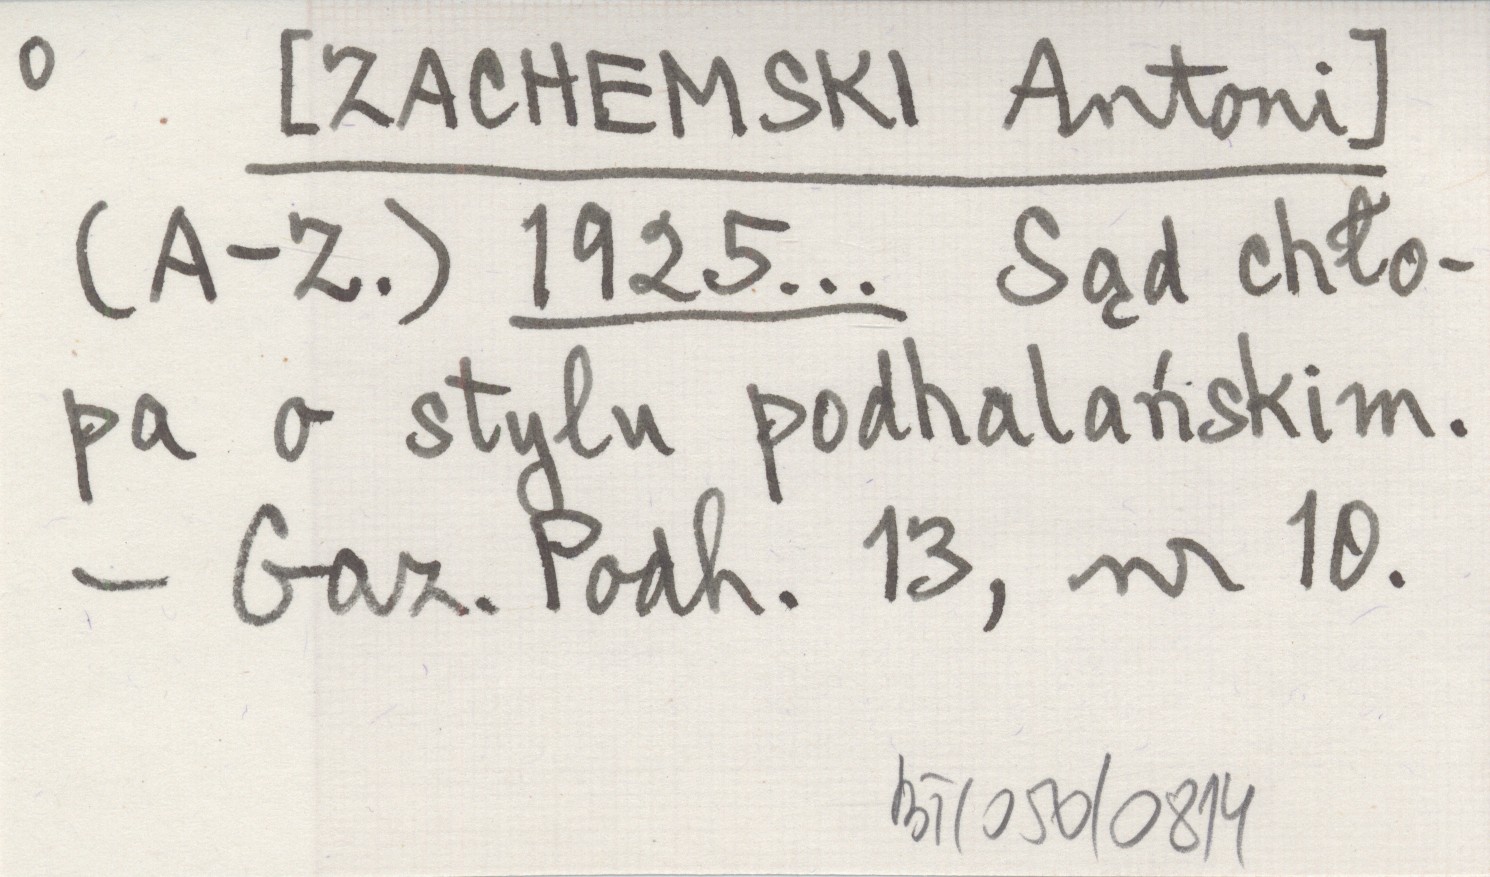 o [ZACHEMSKI Antoni]
(A-Z.) 1925... Sąd chło-
pa o stylu podhalańskim.
— Gaz. Podh. 13, nr 10.
BT/050/0814